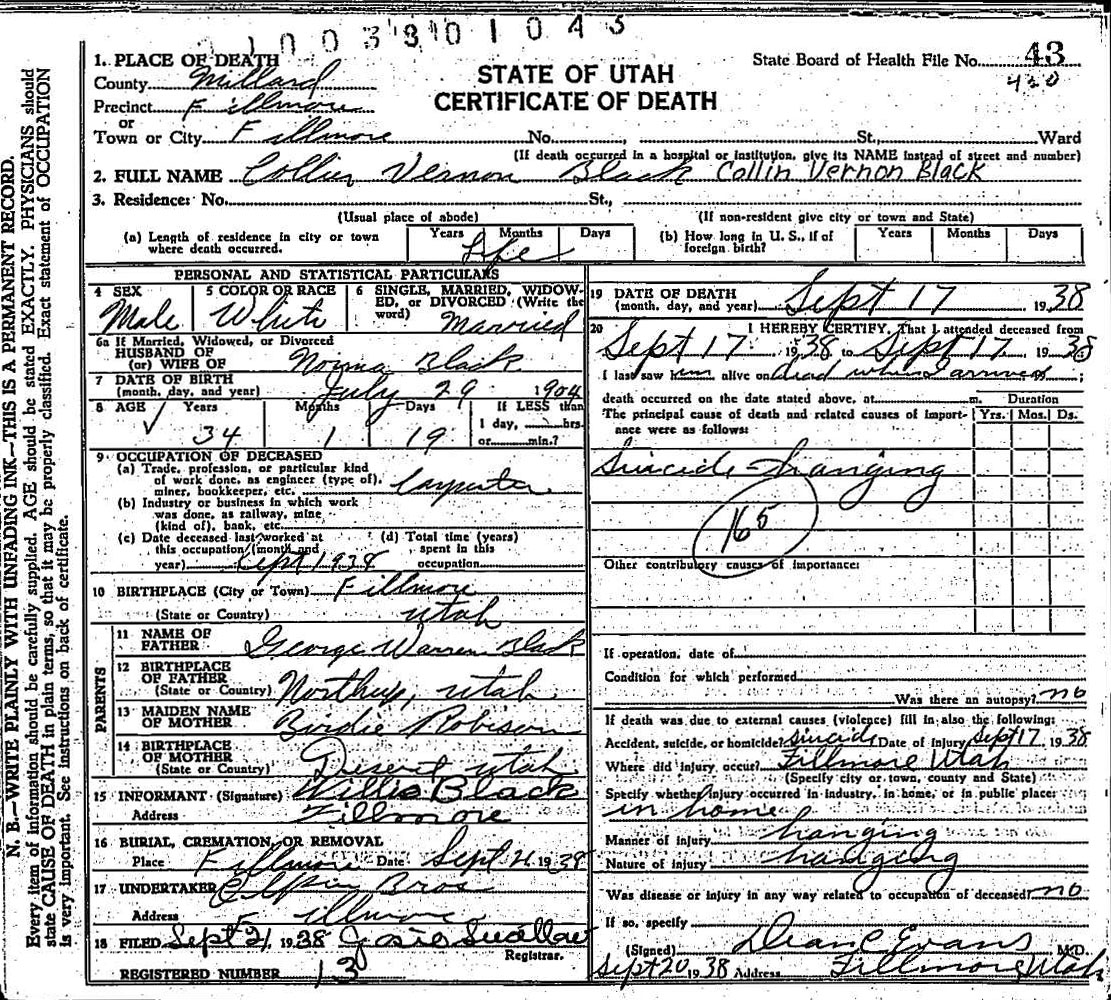 1003301043
1. PLACE OF DEATH
County Millard
Precinct Fillmore
or
Town or City Fillmore No. St. Ward
STATE OF UTAH
CERTIFICATE OF DEATH
State Board of Health File No. 43
420
(If death occurred in a hospital or institution, give its NAME instead of street and number)
2. FULL NAME Collin Vernon Black Collin Vernon Black
3. Residence: No. St.,
(Usual place of abode) (If non-resident give city or town and State)
(a) Length of residence in city or town where death occurred. Years Months Days Life
(b) How long in U. S., if of foreign birth? Years Months Days
PERSONAL AND STATISTICAL PARTICULARS
4 SEX Male
5 COLOR OR RACE White
6 SINGLE, MARRIED, WIDOW-
ED, or DIVORCED (Write the
word) Married
6a If Married, Widowed, or Divorced
HUSBAND OF
(or) WIFE OF Norma Black
7 DATE OF BIRTH
(month, day, and year) July 29 1904
8 AGE Years Months Days If LESS than
34 1 19 1 day, hrs.
or min.?
9 OCCUPATION OF DECEASED
(a) Trade, profession, or particular kind
of work done, as engineer (type of),
miner, bookkeeper, etc. Carpenter
(b) Industry or business in which work
was done, as railway, mine
(kind of), bank, etc.
(c) Date deceased last worked at
this occupation (month and
year) Sept 1938
(d) Total time (years)
spent in this
occupation
10 BIRTHPLACE (City or Town) Fillmore
(State or Country) Utah
PARENTS
11 NAME OF
FATHER George Warren Black
12 BIRTHPLACE
OF FATHER
(State or Country) Northup, Utah
13 MAIDEN NAME
OF MOTHER Birdie Robison
14 BIRTHPLACE
OF MOTHER
(State or Country) Desert Utah
15 INFORMANT (Signature) Willis Black
Address Fillmore
16 BURIAL, CREMATION, OR REMOVAL
Place Fillmore Date Sept 21 1938
17 UNDERTAKER Bros
Address Fillmore
18 FILED Sept 21 1938 Josie Swallow
Registrar.
REGISTERED NUMBER 13
19 DATE OF DEATH
(month, day, and year) Sept 17 1938
20 I HEREBY CERTIFY, That I attended deceased from
Sept 17 1938 to Sept 17 1938
I last saw him alive on dead when I arrived;
death occurred on the date stated above, at m. Duration
The principal cause of death and related causes of import-
ance were as follows: Yrs. Mos. Ds.
Suicide - hanging
165
Other contributory causes of importance:
If operation, date of
Condition for which performed
Was there an autopsy? no
If death was due to external causes (violence) fill in also the following:
Accident, suicide, or homicide? Suicide Date of injury Sept 17 1938
Where did injury occur? Fillmore Utah
(Specify city or town, county and State)
Specify whether injury occurred in industry, in home, or in public place:
in home
Manner of injury hanging
Nature of injury hanging
Was disease or injury in any way related to occupation of deceased? no
If so, specify
(Signed) Dean C Evans M.D.
Sept 20 1938 Address Fillmore, Utah
N. B.—WRITE PLAINLY WITH UNFADING INK—THIS IS A PERMANENT RECORD.
Every item of information should be carefully supplied. AGE should be stated EXACTLY. PHYSICIANS should
state CAUSE OF DEATH in plain terms, so that it may be properly classified. Exact statement of OCCUPATION
is very important. See instructions on back of certificate.